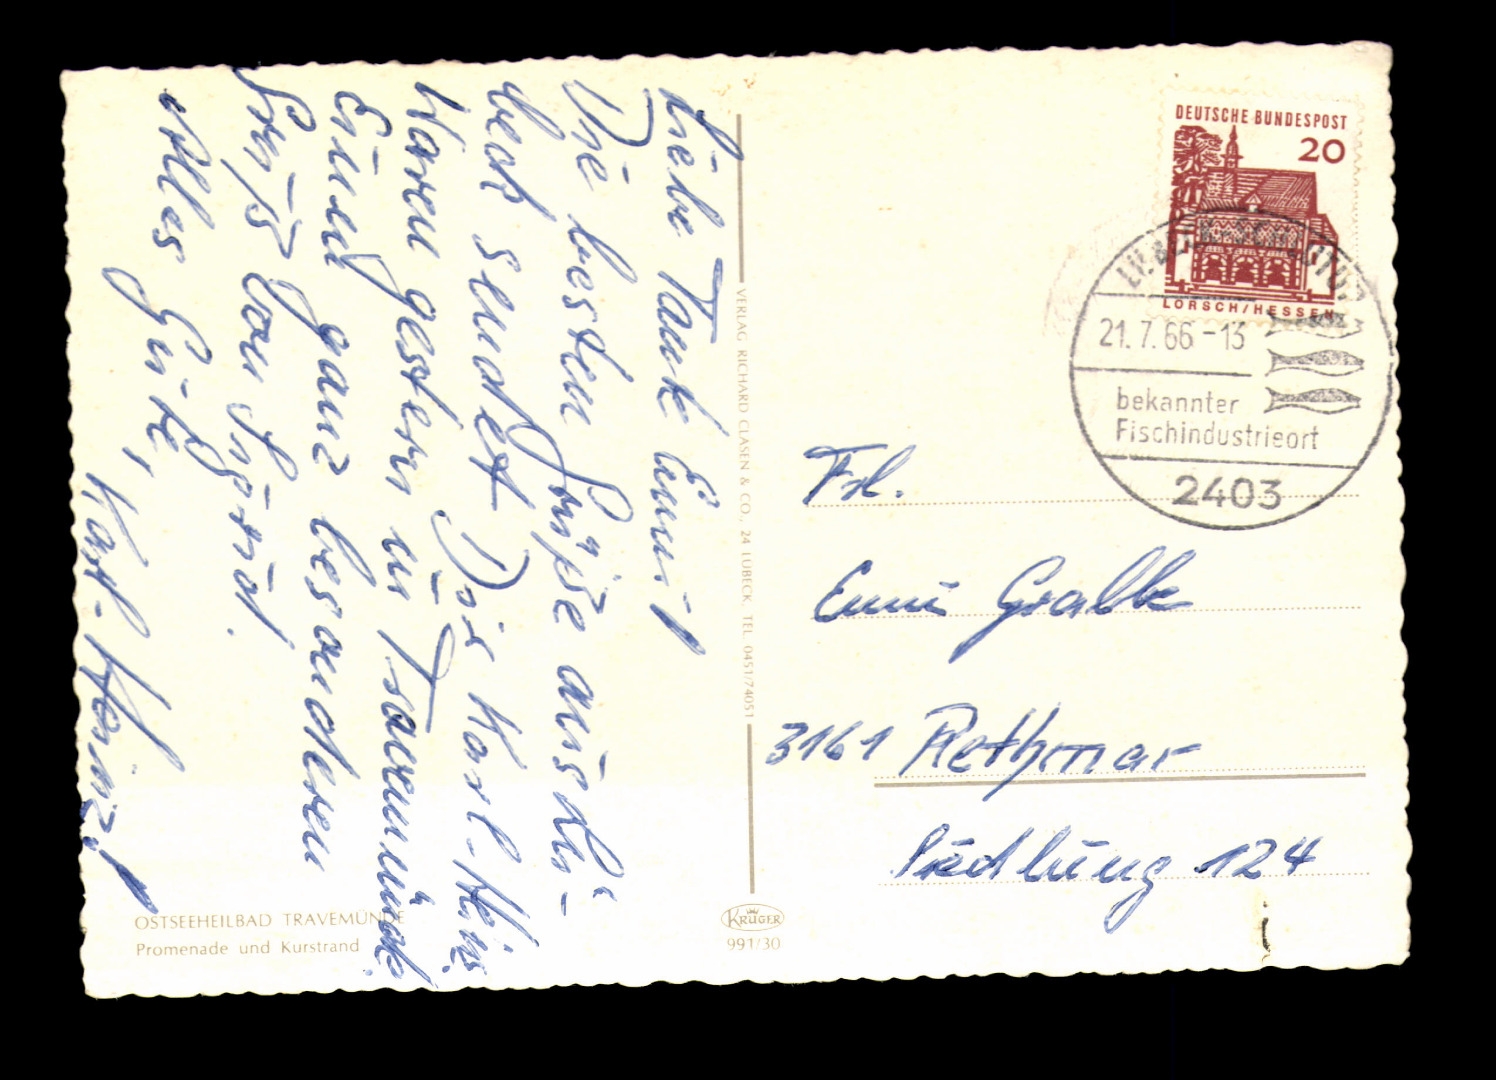 Liebe Tante Emmi!
Die besten Grüße aus Lü-
beck sendet Dir Karl-Heinz.
Waren gestern in Travemünde.
Einen ganz besonderen
Gruß von Ingrid.
Alles Gute,
Karl-Heinz!
OSTSEEHEILBAD TRAVEMÜNDE
Promenade und Kurstrand
VERLAG RICHARD CLASEN & CO., 24 LÜBECK, TEL. 0451/74051
KRÜGER
991/30
DEUTSCHE BUNDESPOST
20
LORSCH/HESSEN
LÜBECK-SCHLUTUP
21.7.66-13
bekannter
Fischindustrieort
2403
Frl.
Emmi Gralke
3161 Rethmar
Siedlung 124